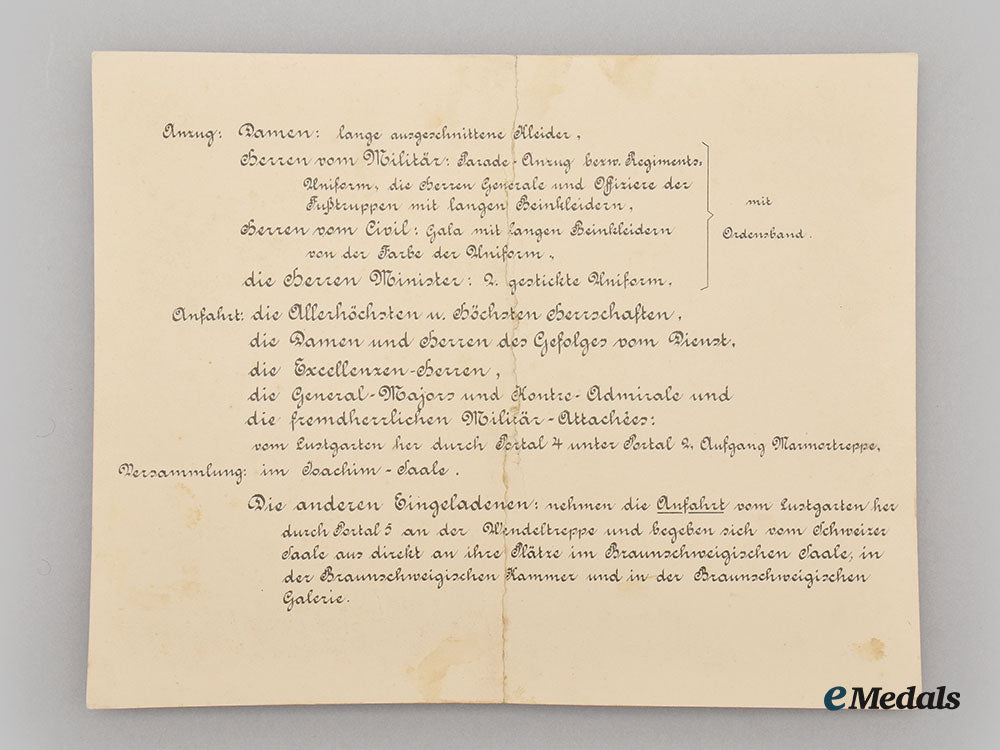 Anzug: Damen: lange ausgeschnittene Kleider,
Herren vom Militär: Parade-Anzug bezw. Regiments-
Uniform, die Herren Generale und Offiziere der
Fußtruppen mit langen Beinkleidern,
Herren vom Civil: Gala mit langen Beinkleidern
von der Farbe der Uniform,
die Herren Minister: 2. gestickte Uniform,
mit
Ordensband.
Anfahrt: die Allerhöchsten u. Höchsten Herrschaften,
die Damen und Herren des Gefolges vom Dienst,
die Excellenzen-Herren,
die General-Majors und Kontre-Admirale und
die fremdherrlichen Militär-Attachées:
vom Lustgarten her durch Portal 4 unter Portal 2, Aufgang Marmortreppe,
Versammlung: im Joachim-Saale.
Die anderen Eingeladenen: nehmen die Anfahrt vom Lustgarten her
durch Portal 5 an der Wendeltreppe und begeben sich vom Schweizer
Saale aus direkt an ihre Plätze im Braunschweigischen Saale, in
der Braunschweigischen Kammer und in der Braunschweigischen
Galerie.
eMedals